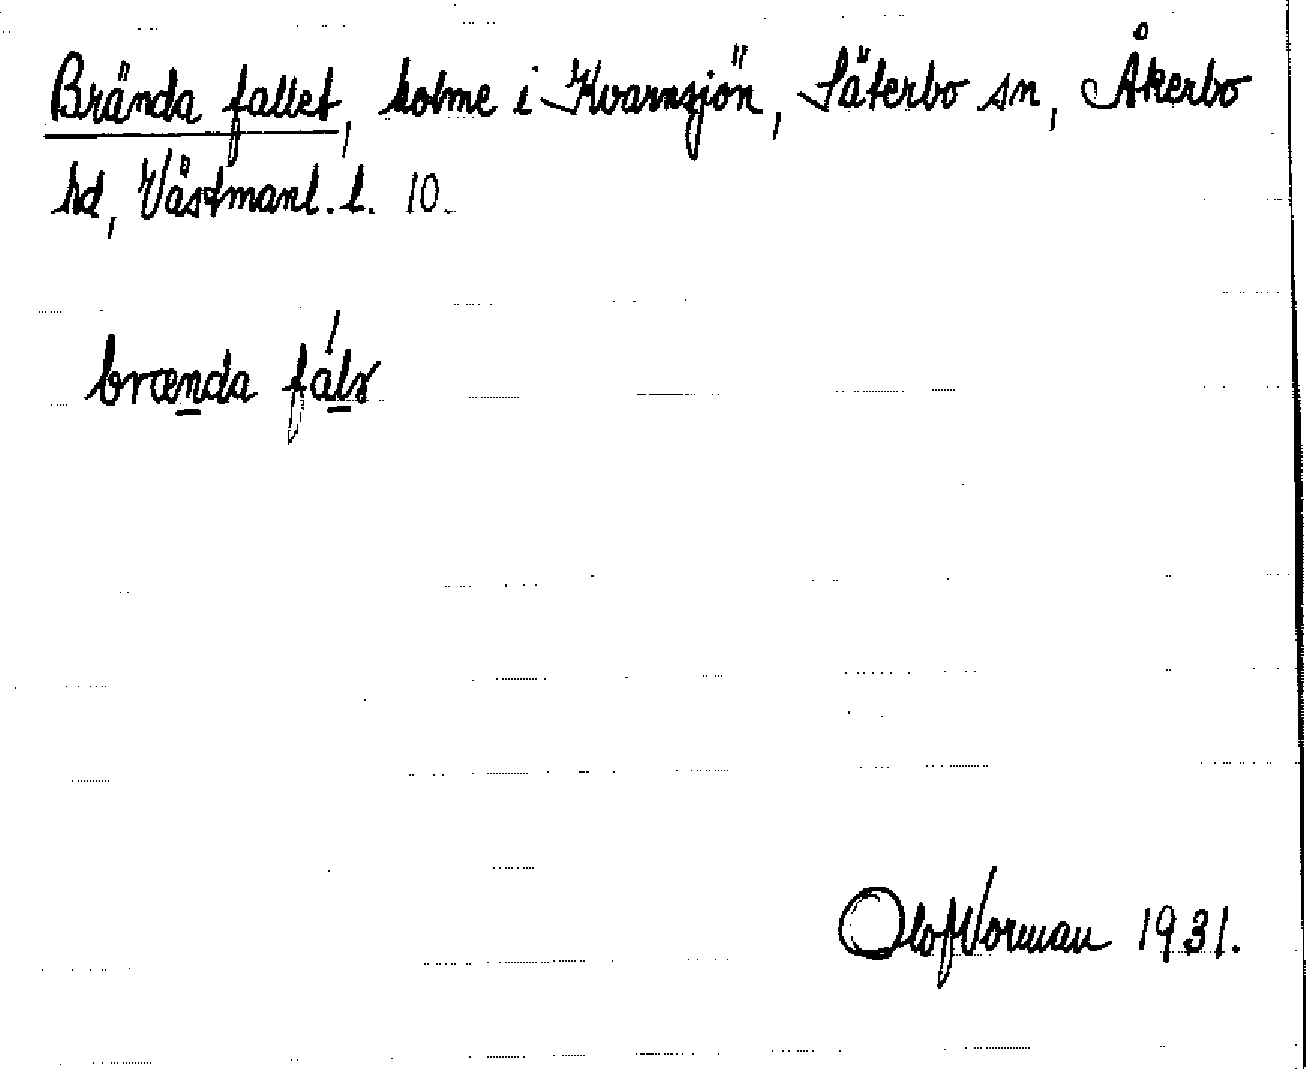 Brända fallet, holme i Kvarnsjön, Säterbo sn, Åkerbo
hd, Västmanl. l. 10.
brænda fálɤ
Olof Norman 1931.